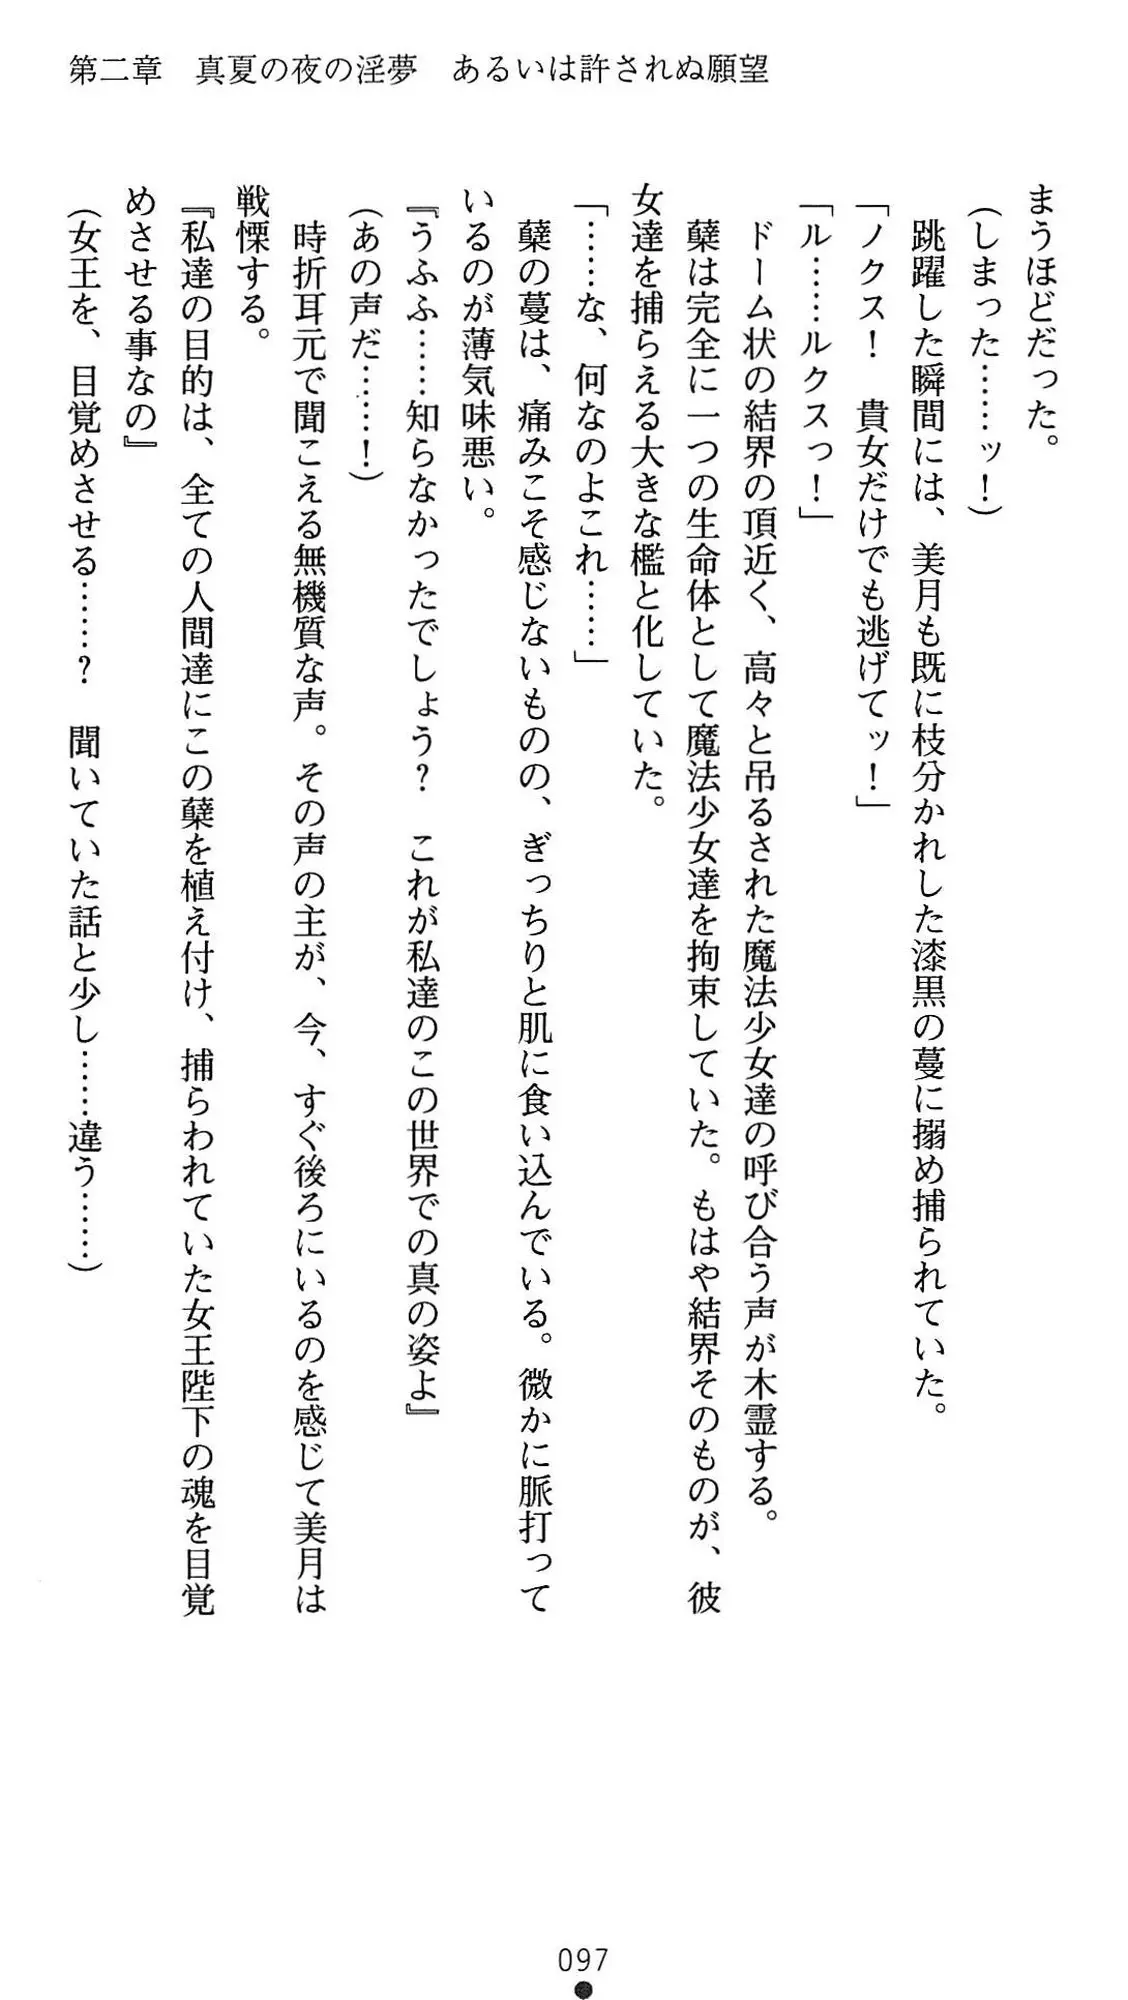 第二章　真夏の夜の淫夢　あるいは許されぬ願望
まうほどだった。
（しまった……ッ！）
　跳躍した瞬間には、美月も既に枝分かれした漆黒の蔓に搦め捕られていた。
「ノクス！　貴女だけでも逃げてッ！」
「ル……ルクスっ！」
　ドーム状の結界の頂近く、高々と吊るされた魔法少女達の呼び合う声が木霊する。
　蘖は完全に一つの生命体として魔法少女達を拘束していた。もはや結界そのものが、彼
女達を捕らえる大きな檻と化していた。
「……な、何なのよこれ……」
　蘖の蔓は、痛みこそ感じないものの、ぎっちりと肌に食い込んでいる。微かに脈打って
いるのが薄気味悪い。
『うふふ……知らなかったでしょう？　これが私達のこの世界での真の姿よ』
（あの声だ……！）
　時折耳元で聞こえる無機質な声。その声の主が、今、すぐ後ろにいるのを感じて美月は
戦慄する。
『私達の目的は、全ての人間達にこの蘖を植え付け、捕らわれていた女王陛下の魂を目覚
めさせる事なの』
（女王を、目覚めさせる……？　聞いていた話と少し……違う……）
097